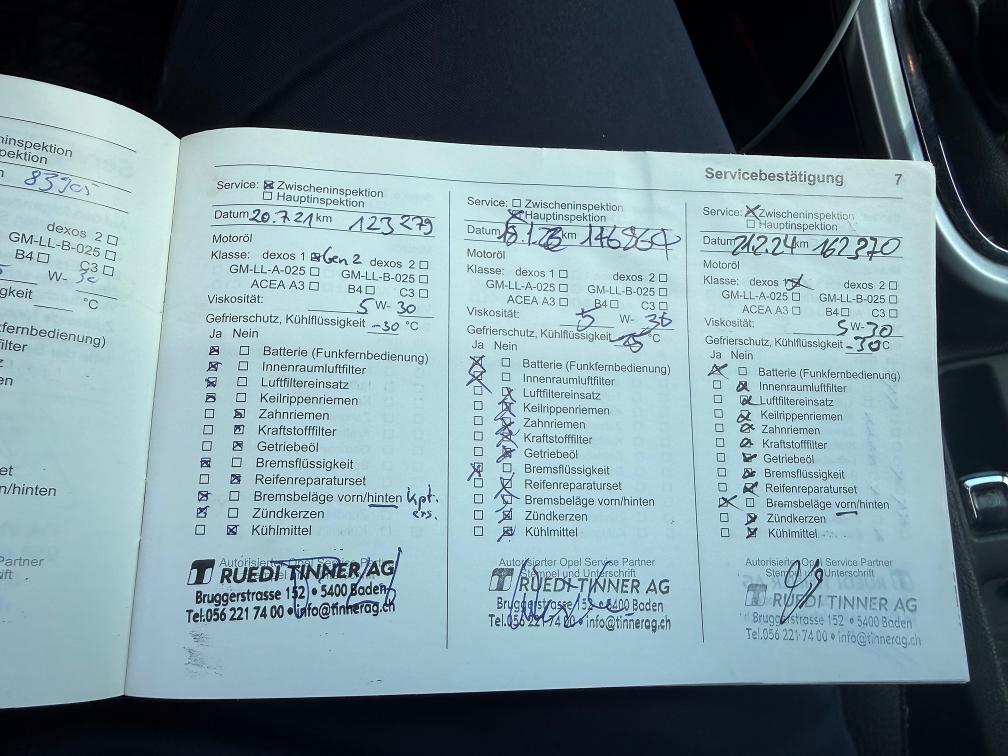 ninspektion
pektion
83905
dexos 2 ☐
GM-LL-B-025 ☐
B4 ☐ C3 ☐
W- 30
gkeit °C
nkfernbedienung)
filter
z
en
et
n/hinten
Partner
ift
Servicebestätigung 7
Service: ☒ Zwischeninspektion
☐ Hauptinspektion
Datum 20.7.21 km 123279
Motoröl
Klasse: dexos 1 ☒ Gen 2 dexos 2 ☐
GM-LL-A-025 ☐ GM-LL-B-025 ☐
ACEA A3 ☐ B4 ☐ C3 ☐
Viskosität: 5 W- 30
Gefrierschutz, Kühlflüssigkeit -30 °C
Ja Nein
☒ ☐ Batterie (Funkfernbedienung)
☒ ☐ Innenraumluftfilter
☒ ☐ Luftfiltereinsatz
☒ ☐ Keilrippenriemen
☐ ☒ Zahnriemen
☐ ☒ Kraftstofffilter
☐ ☒ Getriebeöl
☒ ☐ Bremsflüssigkeit
☐ ☒ Reifenreparaturset
☒ ☐ Bremsbeläge vorn/hinten kpt. ers.
☒ ☐ Zündkerzen
☐ ☒ Kühlmittel
Autorisierter Opel Service Partner
RUEDI TINNER AG
Bruggerstrasse 152 • 5400 Baden
Tel.056 221 74 00 • info@tinnerag.ch
Service: ☐ Zwischeninspektion
☒ Hauptinspektion
Datum km 146864
Motoröl
Klasse: dexos 1 ☐ dexos 2 ☐
GM-LL-A-025 ☐ GM-LL-B-025 ☐
ACEA A3 ☐ B4 ☐ C3 ☐
Viskosität: 5 W- 30
Gefrierschutz, Kühlflüssigkeit °C
Ja Nein
☒ ☐ Batterie (Funkfernbedienung)
☒ ☐ Innenraumluftfilter
☐ ☒ Luftfiltereinsatz
☐ ☒ Keilrippenriemen
☐ ☒ Zahnriemen
☐ ☒ Kraftstofffilter
☐ ☒ Getriebeöl
☒ ☐ Bremsflüssigkeit
☐ ☒ Reifenreparaturset
☐ ☒ Bremsbeläge vorn/hinten
☐ ☒ Zündkerzen
☐ ☒ Kühlmittel
Autorisierter Opel Service Partner
Stempel und Unterschrift
RUEDI TINNER AG
Bruggerstrasse 152 • 5400 Baden
Tel.056 221 74 00 • info@tinnerag.ch
Service: ☒ Zwischeninspektion
☐ Hauptinspektion
Datum 21.2.24 km 162370
Motoröl
Klasse: dexos 1 ☒ dexos 2 ☐
GM-LL-A-025 ☐ GM-LL-B-025 ☐
ACEA A3 ☐ B4 ☐ C3 ☐
Viskosität: 5 W- 30
Gefrierschutz, Kühlflüssigkeit -30 °C
Ja Nein
☒ ☐ Batterie (Funkfernbedienung)
☐ ☒ Innenraumluftfilter
☐ ☒ Luftfiltereinsatz
☐ ☒ Keilrippenriemen
☐ ☒ Zahnriemen
☐ ☒ Kraftstofffilter
☐ ☒ Getriebeöl
☐ ☒ Bremsflüssigkeit
☐ ☒ Reifenreparaturset
☒ ☐ Bremsbeläge vorn/hinten
☐ ☒ Zündkerzen
☐ ☒ Kühlmittel
Autorisierter Opel Service Partner
Stempel und Unterschrift
RUEDI TINNER AG
Bruggerstrasse 152 • 5400 Baden
Tel.056 221 74 00 • info@tinnerag.ch